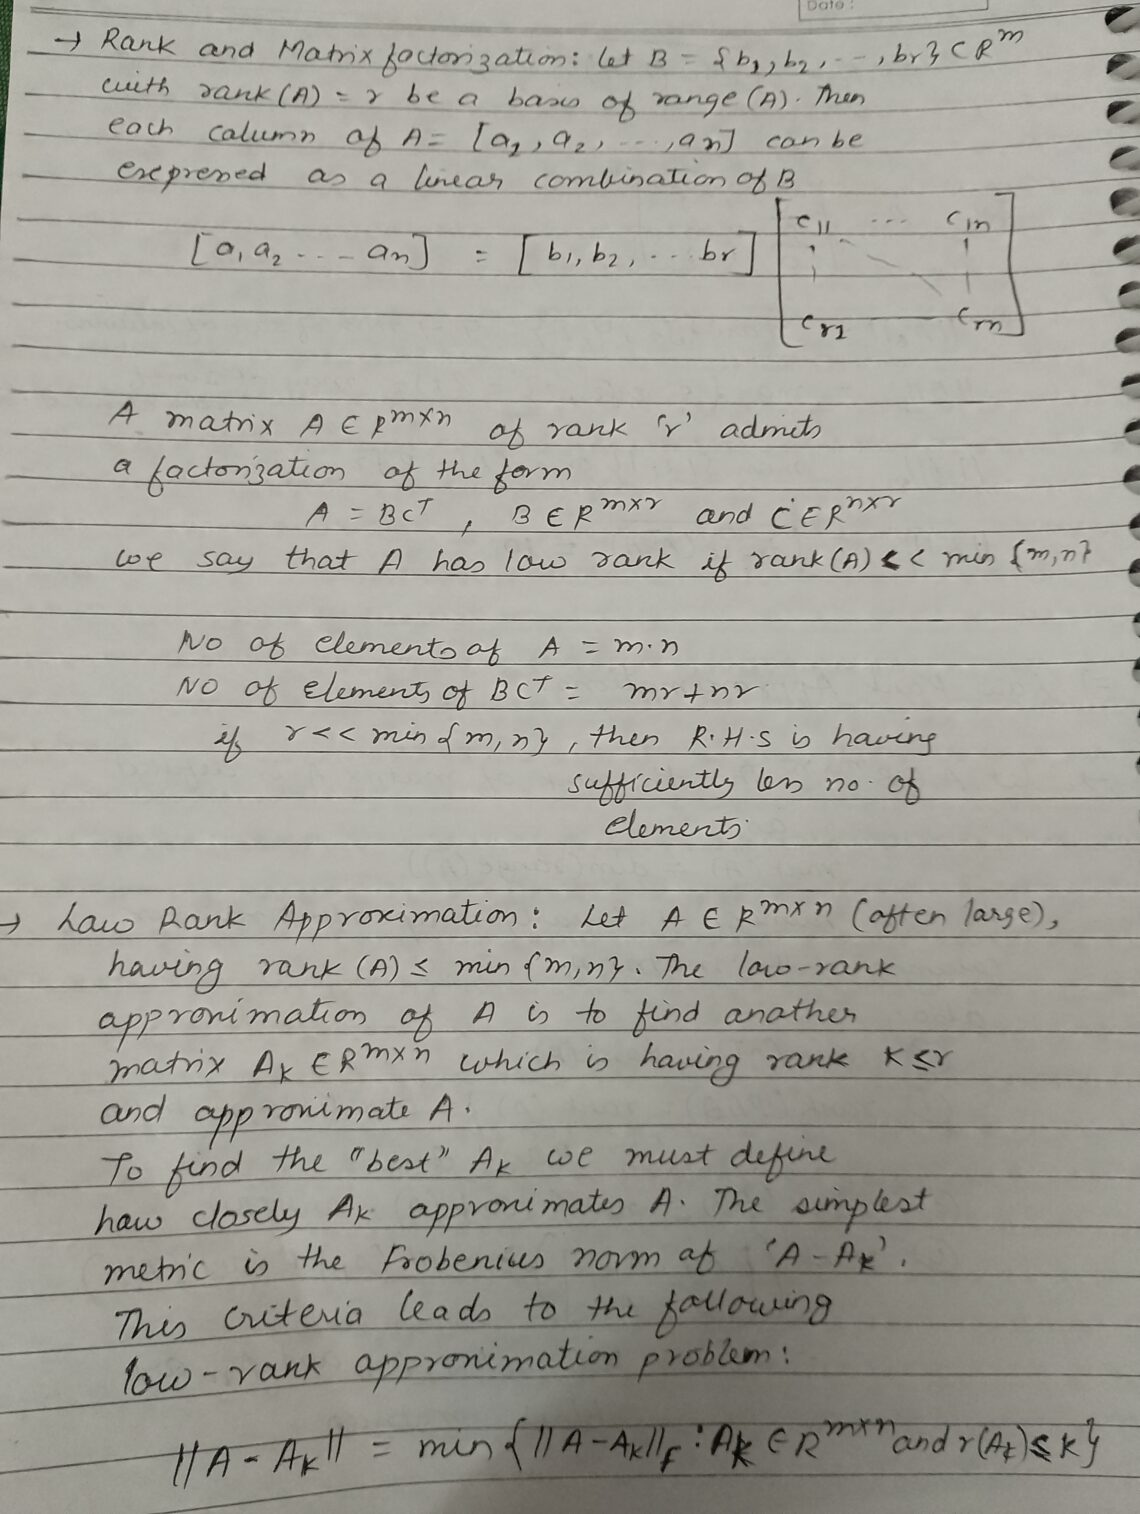 Date :
→ Rank and Matrix factorization: let B = {b1, b2, --, br} ⊂ R^m
with rank(A) = r be a basis of range(A). Then
each column of A = [a1, a2, ---, an] can be
expressed as a linear combination of B
[a1 a2 --- an] = [b1, b2, --- br] [c11 ... c1n
cr1 crn]
A matrix A ∈ R^m×n of rank 'r' admits
a factorization of the form
A = BC^T , B ∈ R^m×r and C ∈ R^n×r
we say that A has low rank if rank(A) << min {m,n}
No of elements of A = m·n
No of elements of BC^T = mr+nr
if r << min {m, n}, then R·H·S is having
sufficiently less no. of
elements
→ Low Rank Approximation: Let A ∈ R^m×n (often large),
having rank (A) ≤ min {m,n}. The low-rank
approximation of A is to find another
matrix Ak ∈ R^m×n which is having rank K ≤ r
and approximate A.
To find the "best" Ak we must define
how closely Ak approximates A. The simplest
metric is the Frobenius norm of 'A - Ak'.
This criteria leads to the following
low-rank approximation problem:
||A - Ak|| = min {||A - Ak||F : Ak ∈ R^m×n and r(Ak) ≤ K}